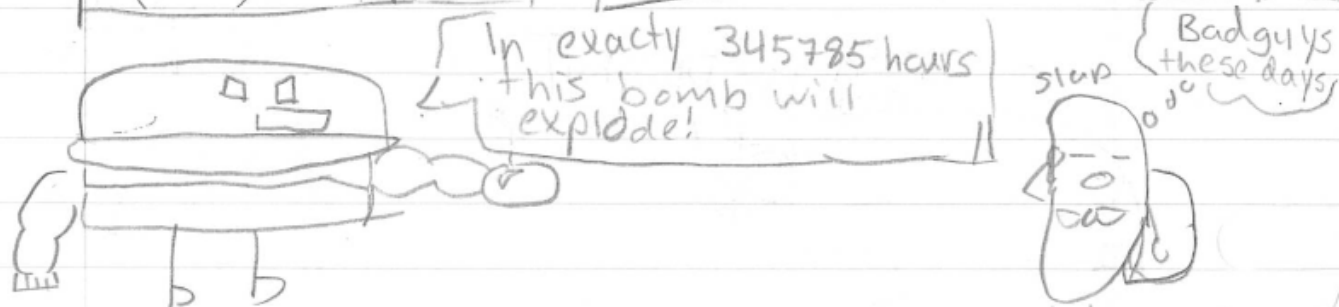 In exacty 345785 hours
this bomb will
explode!
slap
Badguys
these days